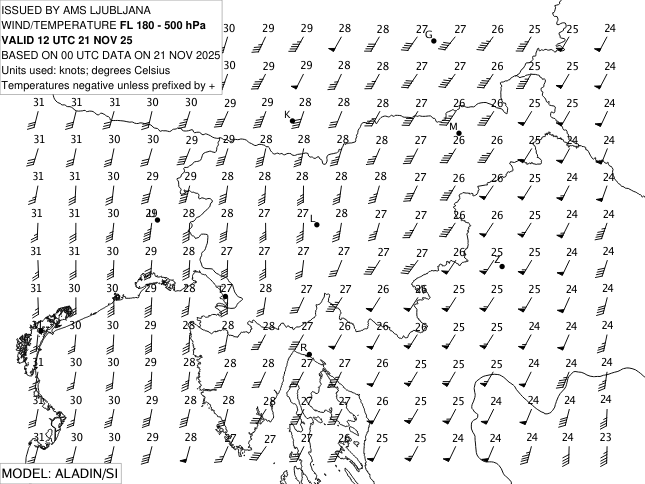 ISSUED BY AMS LJUBLJANA
WIND/TEMPERATURE FL 180 - 500 hPa
VALID 12 UTC 21 NOV 25
BASED ON 00 UTC DATA ON 21 NOV 2025
Units used: knots; degrees Celsius
Temperatures negative unless prefixed by +
30 29 29 28 28 27 27 26 25 25 24
G
30 29 29 28 28 27 27 26 25 25 24
31 31 30 30 30 29 29 28 28 28 27 26 26 25 25 24
K
M
31 31 30 30 29 29 28 28 28 28 27 26 26 25 24 24
31 31 30 29 29 28 28 28 28 27 27 26 26 25 24 24
31 31 30 29 28 28 27 27 28 27 27 26 25 25 24 24
L
31 31 30 29 28 27 27 27 27 27 27 26 25 25 24 24
Z
31 30 30 29 28 27 28 27 27 26 26 25 25 25 24 24
31 30 30 29 28 28 28 27 26 26 26 25 25 24 24 24
R
31 30 30 29 28 28 28 27 27 26 25 25 25 24 24 24
31 30 30 29 28 28 27 27 27 26 25 25 24 24 24 24
31 30 30 29 28 27 27 27 26 25 25 24 24 24 24 23
MODEL: ALADIN/SI